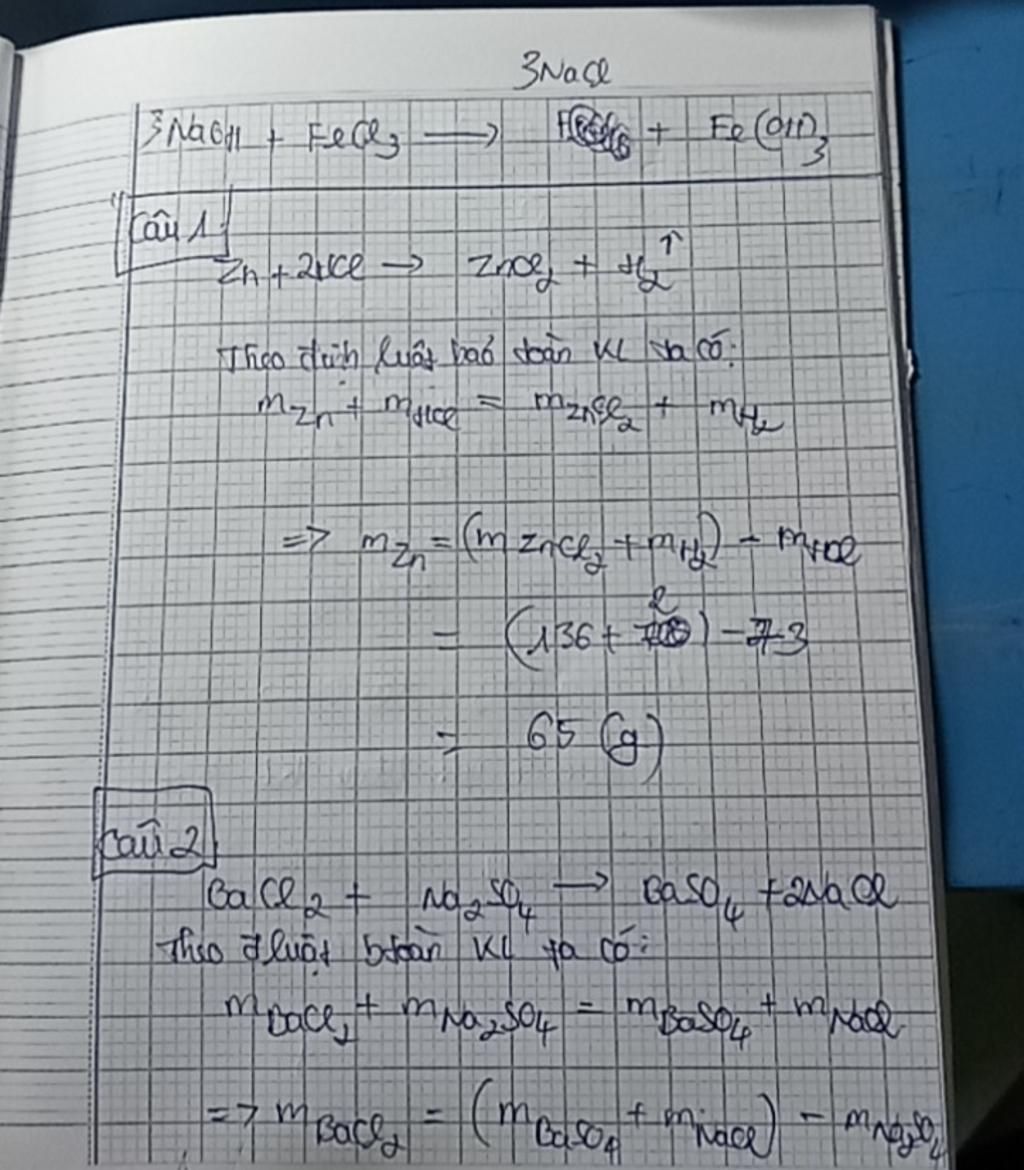 3NaCl
3NaOH + FeCl₃ ⟶ + Fe(OH)₃
Câu 1
Zn + 2HCl → ZnCl₂ + H₂↑
Theo định luật bảo toàn KL ta có:
m_Zn + m_HCl = m_ZnCl₂ + m_H₂
=> m_Zn = (m ZnCl₂ + m_H₂) - m_HCl
= (136 + 2) - 73
= 65 (g)
Câu 2
BaCl₂ + Na₂SO₄ → BaSO₄ + 2NaCl
Theo đluật btoàn KL ta có:
m_BaCl₂ + m_Na₂SO₄ = m_BaSO₄ + m_NaCl
=> m_BaCl₂ = (m_BaSO₄ + m_NaCl) - m_Na₂SO₄